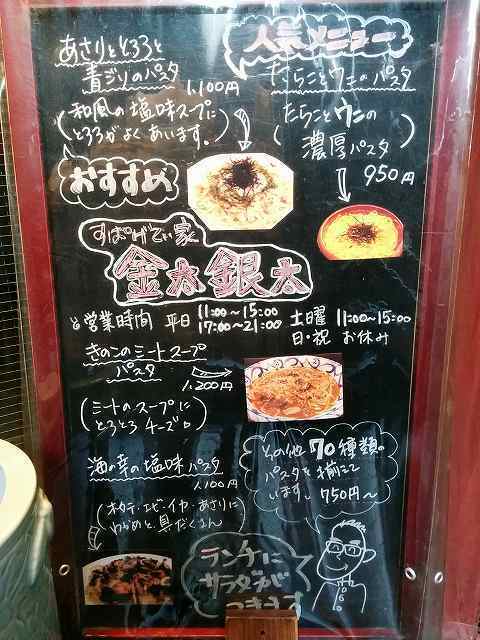 人気メニュー
あさりととろろと
青ジソのパスタ
1,100円
(和風の塩味スープに
とろろがよくあいます。)
おすすめ
たらことウニのパスタ
(たらことウニの
濃厚パスタ)
950円
すぱげてぃ家
金太銀太
営業時間 平日 11:00~15:00
17:00~21:00
土曜 11:00~15:00
日・祝 お休み
きのこのミートスープ
パスタ
1,200円
(ミートのスープに
とろとろチーズ。)
海の幸の塩味パスタ
1,100円
(ホタテ・エビ・イカ・あさりに
わかめと具だくさん)
その他 70種類の
パスタを揃えて
います。 750円~
ランチに
サラダが
つきます